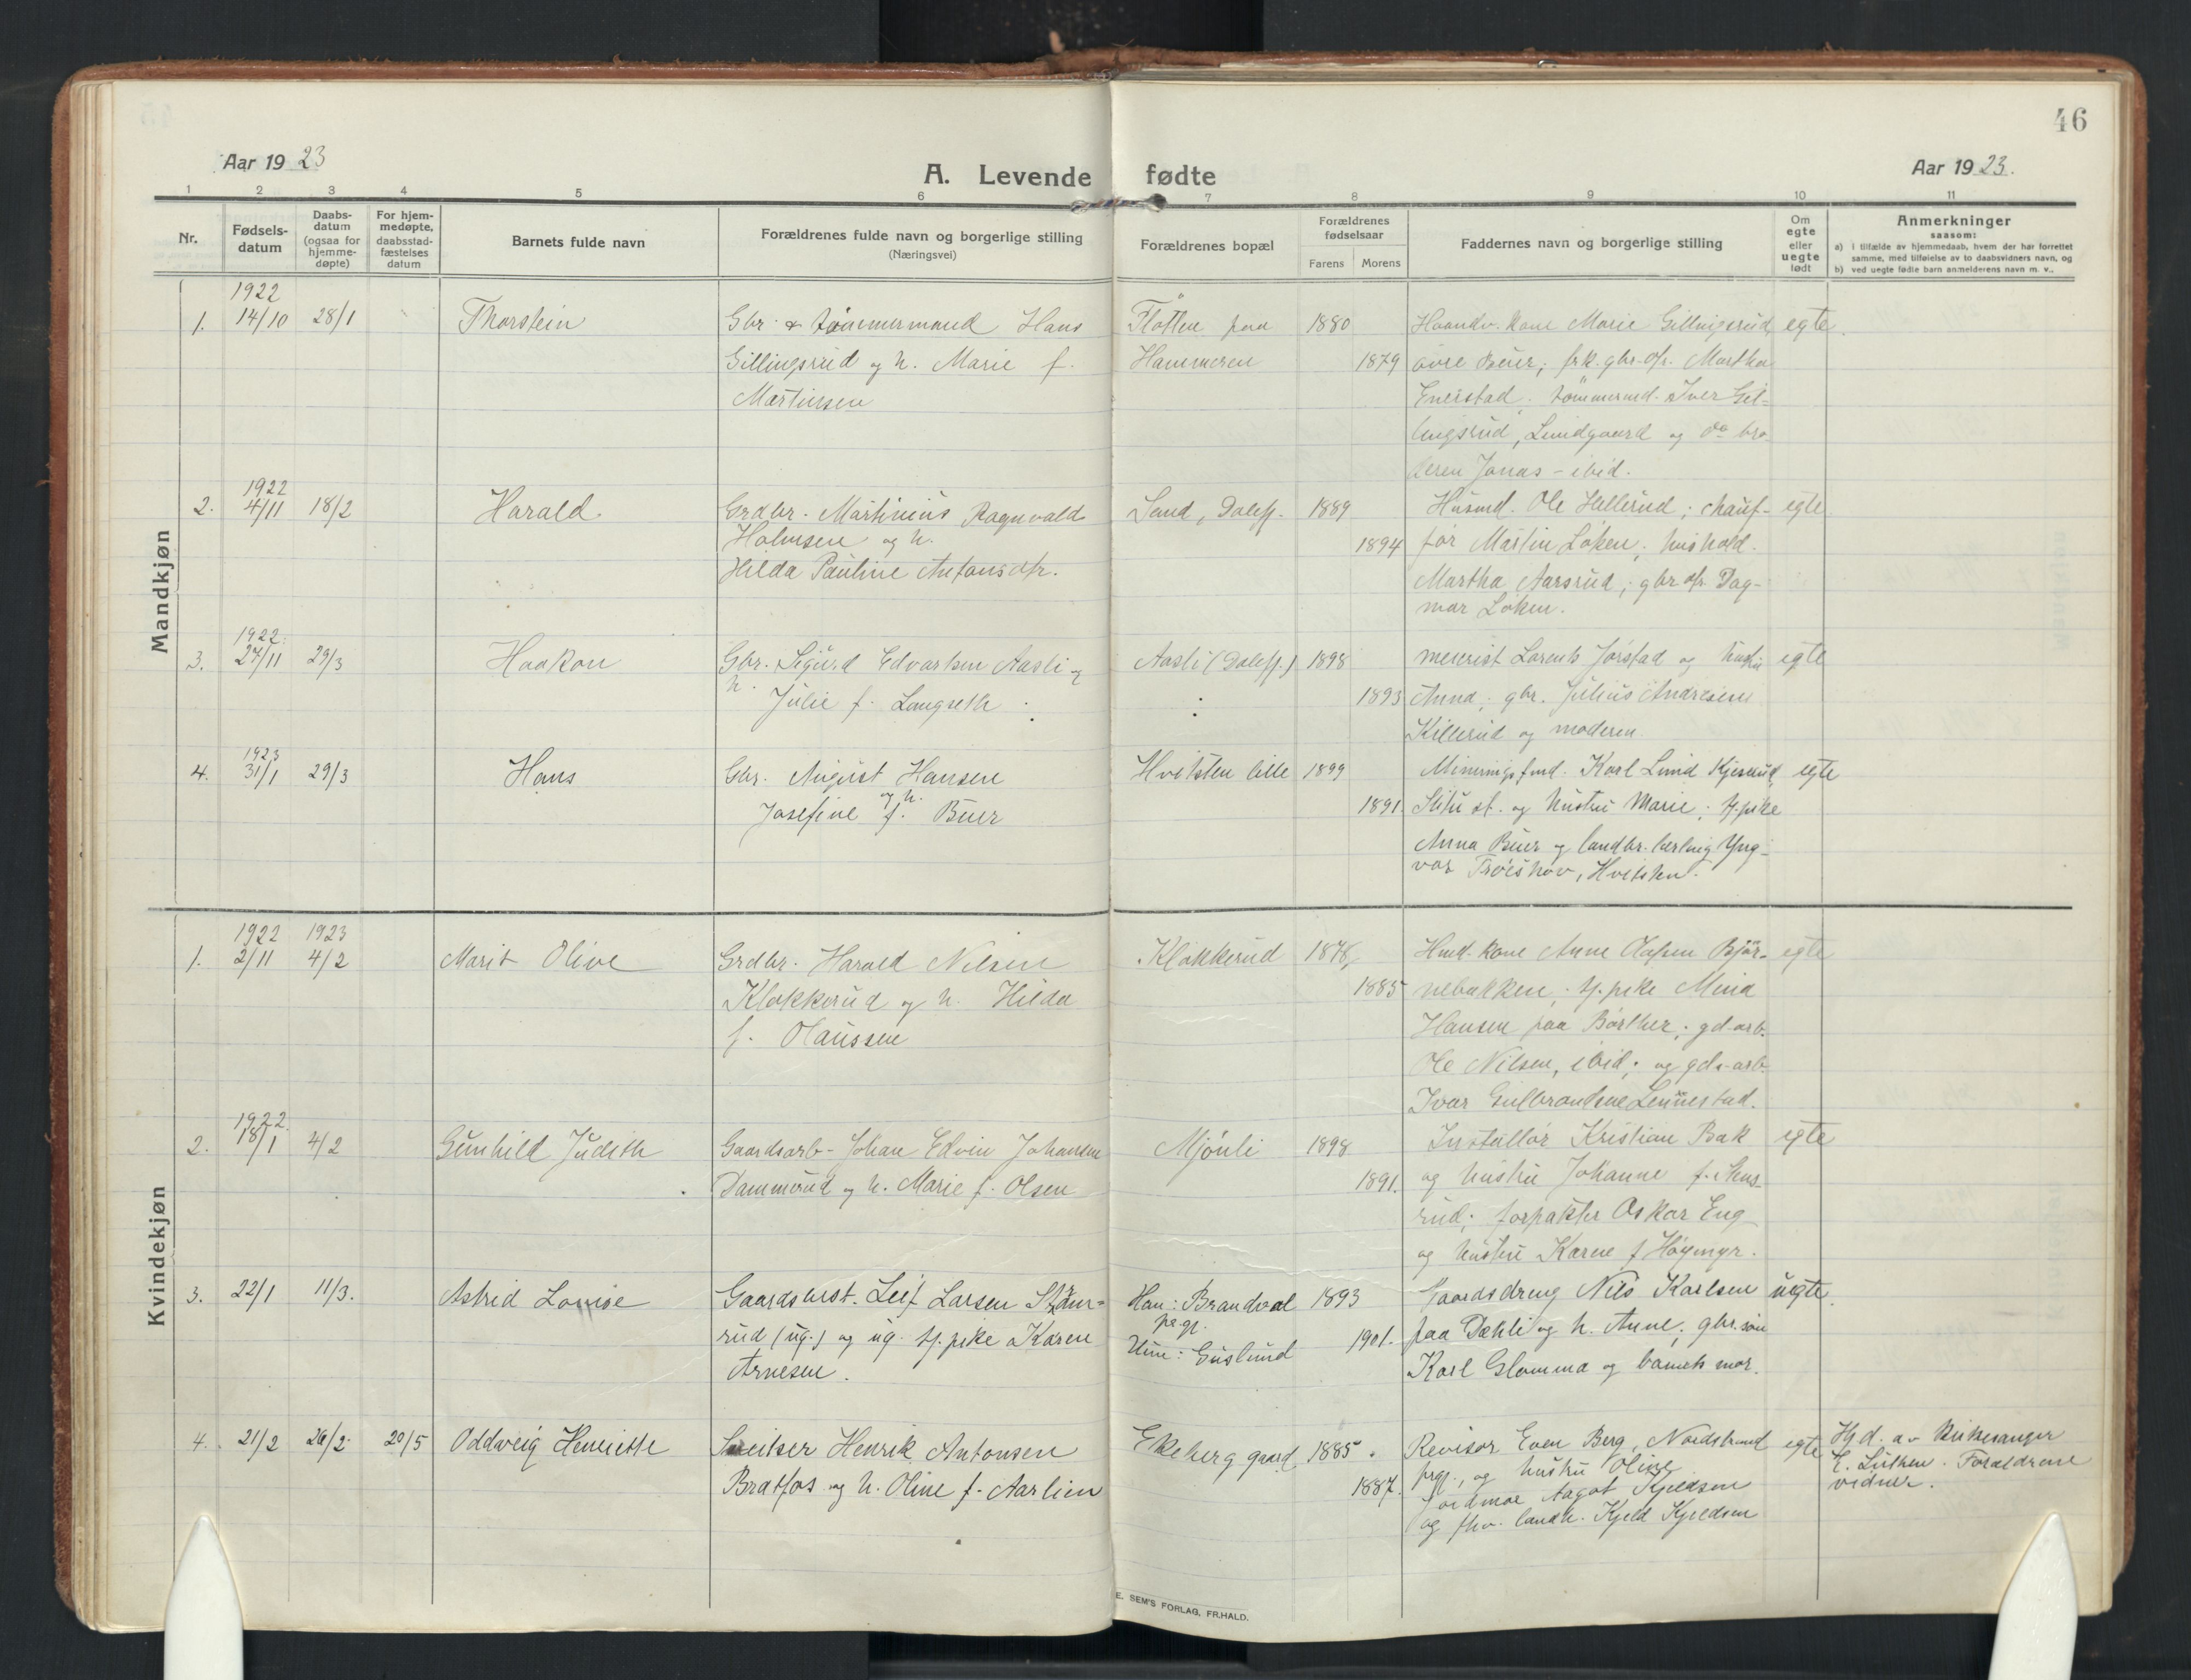 46
Aar 19 23
A. Levende fødte
Aar 19 23.
1 2 3 4 5 6 7 8 9 10 11
Nr.
Fødsels-
datum
Daabs-
datum
(ogsaa for
hjemme-
døpte)
For hjem-
medøpte,
daabsstad-
fæstelses
datum
Barnets fulde navn
Forældrenes fulde navn og borgerlige stilling
(Næringsvei)
Forældrenes bopæl
Forældrenes
fødselsaar
Farens Morens
Faddernes navn og borgerlige stilling
Om
egte
eller
uegte
født
Anmerkninger
saasom:
a) i tilfælde av hjemmedaab, hvem der har forrettet
samme, med tilføielse av to daabsvidners navn, og
b) ved uegte fødte barn anmelderens navn m. v..
Mandkjøn
1922
1. 14/10 28/1 Thorstein
Gbr. & tömmermand Hans
Gillingsrud og h. Marie f.
Martinsen
Flatten paa
Hammeren
1880
1879
Haandv. kone Marie Gillingsrud
övre Buer; frk. gbr. dfr. Martha
Eneistad; tömmermd. Iver Gil-
lingsrud, Lundgaard og do bro-
deren Jonas - ibid.
egte.
1922
2. 4/11 18/2 Harald
Grdbr. Martinius Ragnvald
Holmsen og h.
Hilda Pauline Antonsdtr.
Sand, Dalefj.
1889
1894
Husmd. Ole Hellerud; chauf-
för Martin Löken; hushold.
Martha Aarsrud; gbr. dfr. Dag-
mar Löken.
egte
1922
3. 27/11 29/3 Haakon
Gbr. Sigurd Edvartsen Aasli og
h.
Julie f. Langseth
Aasli (Dalefj.)
1898
1893
meierist Lorents Jörstad og hustru
Anna; gbr. Julius Andresen
Killerud og moderen.
egte
1923
4. 31/1 29/3 Hans
Gbr. August Hansen
og h.
Josefine f. Buer
Hvitsten lille
1899
1891.
Karl Lund Kjeserud
st. og hustru Marie; tj. pike
Anna Buer og landbr. lærling Yng-
var Tröishov, Hvitsten.
egte
Kvindekjøn
1922 1923
1. 2/11 4/2 Marit Olive
Grdbr. Harald Nilsen
Klokkerud og h. Hilda
f. Olaussen
Klokkerud
1878,
1885
Hmd. kone Anne Olafsen Björ-
nebakken; tj. pike Mina
Hansen paa Börther; gd. arb.
Ole Nilsen, ibid; og gds-arb.
Ivar Gulbrandsen Lennestad.
egte
1922.
2. 18/1 4/2 Gunhild Judith
Gaardsarb- Johan Edvin Johansen
Dammerud og h. Marie f. Olsen
Mjönli
1898
1891.
Installör Kristian Bak
og hustru Johanne f. Skus-
rud; forpakter Oskar Eng
og hustru Karen f Höymyr.
egte
3. 22/1 11/3. Astrid Lovise
Gaardsbest. Leif Larsen Ström-
rud (ug.) og ug. tj. pike Karen
Arnesen.
Han: Brandval
pgj.
Hun: Enslund
1893
1901.
Gaardsdreng Nils Karlsen
paa Dæhli og h. Anne; gbr. sön
Karl Glomma og barnets mor.
uegte
4. 21/2 26/2 20/5 Oddveig Henriette
Sveitser Henrik Antonsen
Bratfos og h. Oline f. Aarlien
Ekeberg gaard
1885
1887.
Revisor Even Berg, Nordstrand
prgj., og hustru Oline
Jordmor Aagot Kjeldsen
og fhv. landh. Kjeld Kjeldsen
egte
Hj. d. av Kirkesanger
E. Lisken. Forældrene
vidner.
E. SEM'S FORLAG, FR.HALD.